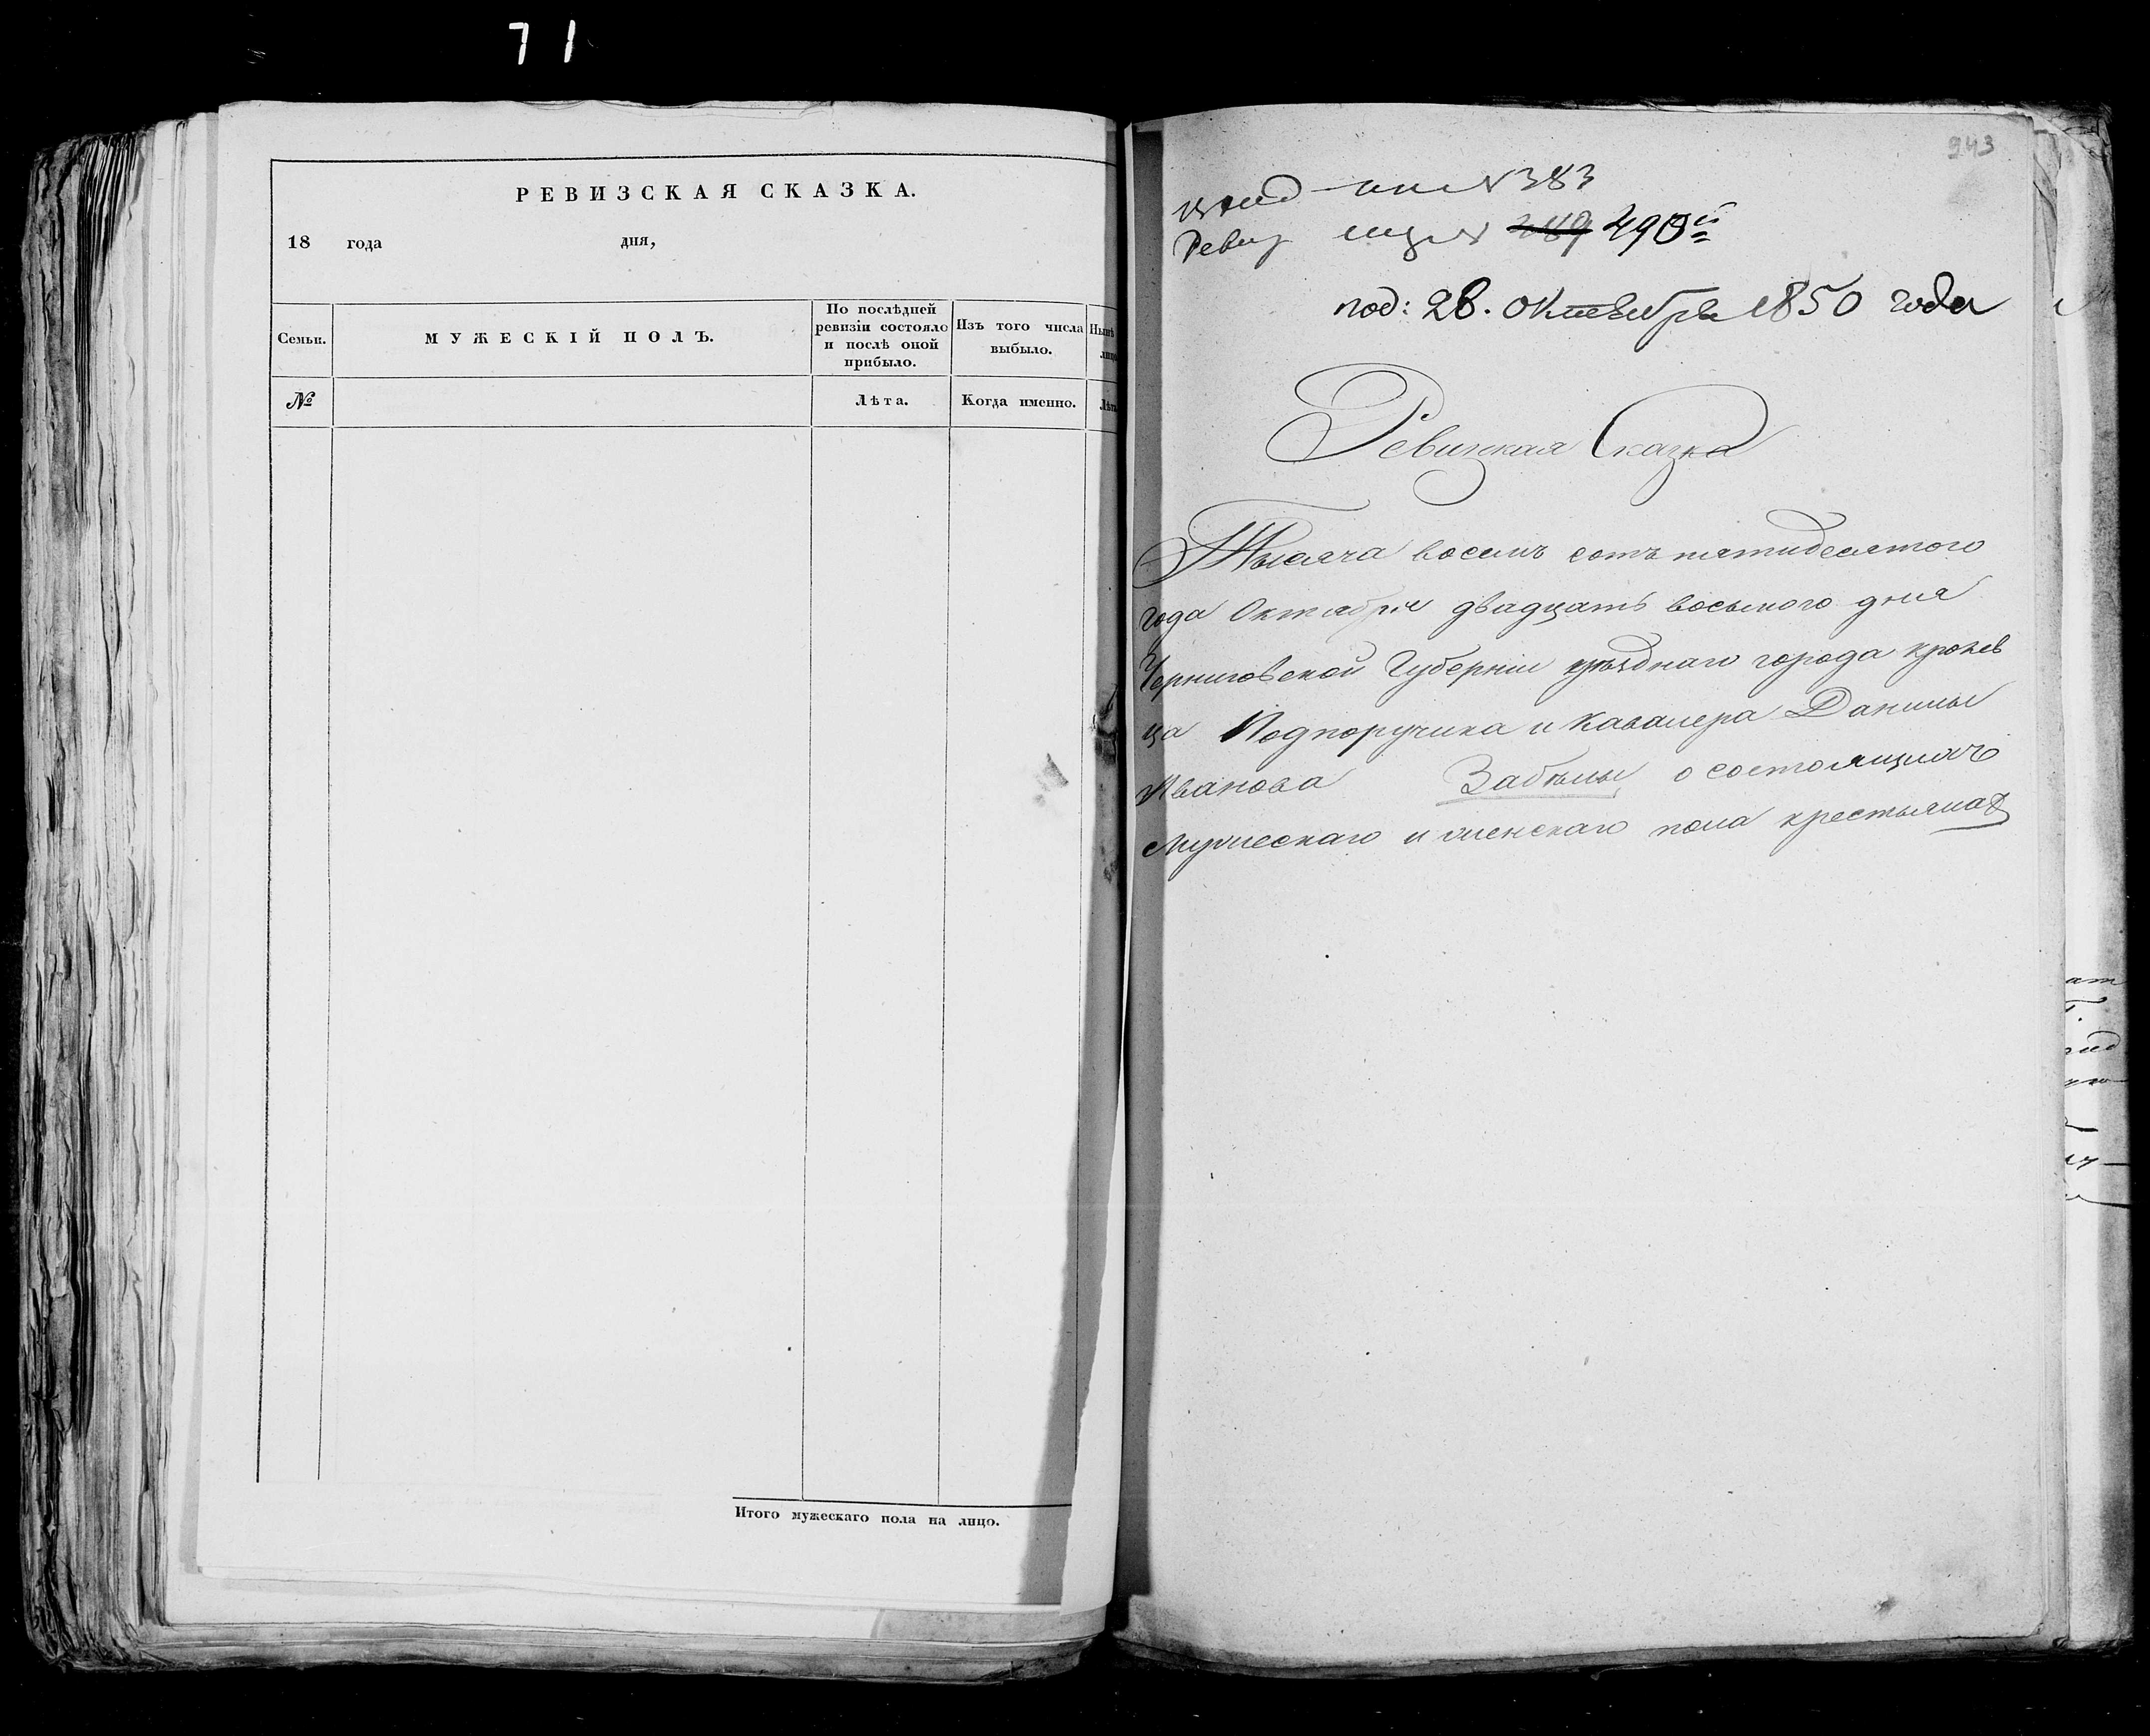 71
РЕВИЗСКАЯ СКАЗКА.
18 года дня,
Семьи.
МУЖЕСКІЙ ПОЛЪ.
По послѣдней
ревизіи состояло
и послѣ оной
прибыло.
Изъ того числа
выбыло.
№
Лѣта.
Когда именно.
Итого мужескаго пола на лицо.
943
№ 383
Ревиз № 489 490й
под: 28. Октября 1850 года
Ревизкая Сказка
Тысяча восемъ сотъ пятидесятого
года Октября двадцать восьмого дня
Черниговской Губерніи уѣзднаго города кролев
ца Подпоручика и Кавалера Данилы
Иванова Забѣлы, о состоящихъ
мужескаго и женскаго пола крестьянахъ